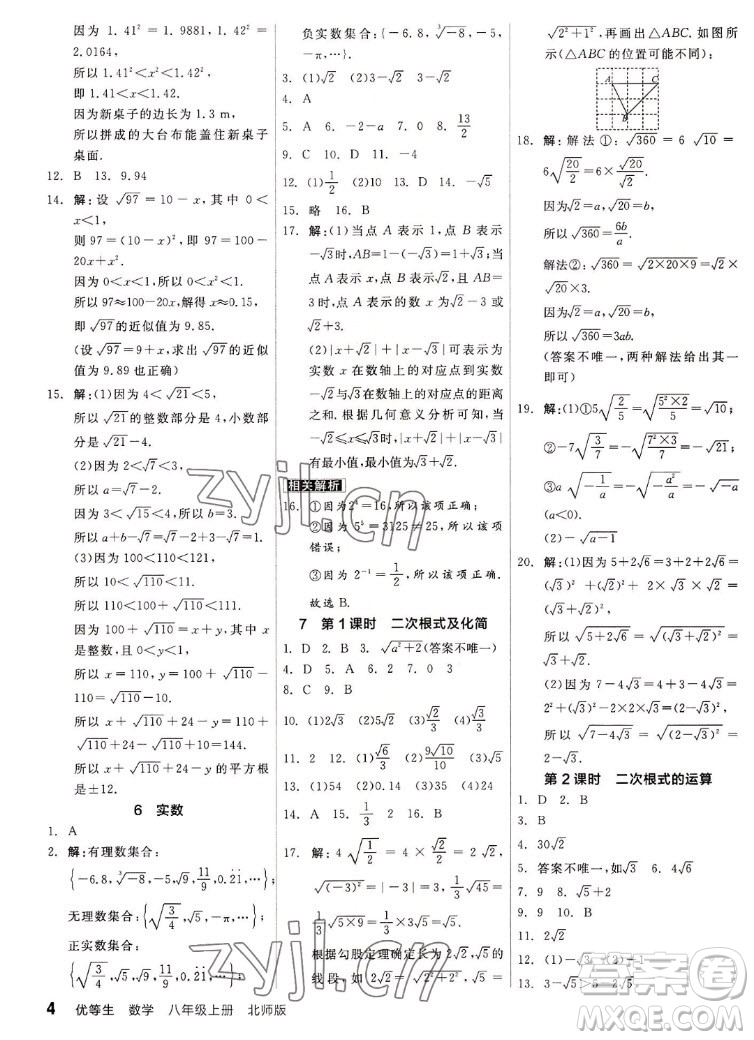 因为 1.41² = 1.9881,1.42² =
2.0164,
所以 1.41²<x²<1.42²,
即 1.41<x<1.42.
因为新桌子的边长为 1.3 m,
所以拼成的大台布能盖住新桌子
桌面.
12. B 13. 9.94
14. 解: √97 = 10 - x, 其中 0 <
x<1,
则 97 = (10 - x)², 即 97 = 100 -
20x+x².
因为 0<x<1, 所以 0<x²<1.
所以 97≈100-20x,解得 x≈0.15,
即 √97 的近似值为 9.85.
(设 √97 = 9 + x, 求出 √97 的近似
值为 9.89 也正确)
15. 解:(1)因为 4< √21 <5,
所以 √21 的整数部分是 4,小数部
分是 √21 -4.
(2)因为 2< √7 <3,
所以 a= √7 -2.
因为 3< √15 <4, 所以 b=3.
所以 a+b- √7 = √7 -2+3- √7 =1.
(3)因为 100<110<121,
所以 10< √110 <11.
所以 110< 100+ √110 <111.
因为 100 + √110 = x + y, 其中 x
是整数, 且 0<y<1,
所以 x=110, y=100+ √110 -110=
√110 -10.
所以 x + √110 + 24 - y = 110 +
√110 +24- √110 +10=144.
所以 x + √110 + 24 - y 的平方根
是±12.
6 实数
1. A
2. 解:有理数集合:
{-6.8, ∛-8, -5, √9, 11/9, 0.2̇1̇, …}
无理数集合: {√(3/4), √5, -π, …},
正实数集合:
{√(3/4), √5, √9, 11/9, 0.2̇1̇, …},
负实数集合:{-6.8, ∛-8, -5,
-π,…}.
3. (1)√2 (2)3-√2 3-√2
4. A
5. A 6. -2-a 7. 0 8. 13/2
9. C 10. D 11. D
12. (1)1/2 (2)10 13. C 14. -√5
15. 略 16. B
17. 解:(1)当点 A 表示 1, 点 B 表示
-√3时, AB=1-(-√3)=1+√3; 当
点 A 表示 x,点 B 表示√2时, AB=
3 时,点 A 表示的数 x 为√2-3 或
√2+3.
(2)|x+√2|+|x-√3|表示实数
x 在数轴上的对应点到实数
-√2与√3在数轴上的对应点的距离
之和. 根据几何意义分析可知, 当
-√2≤x≤√3时, |x+√2|+|x-√3|
有最小值, 最小值为√2+√3.
相关解析
16. ①因为2⁴=16,所以该项正确;
②因为5⁵=3125≠25, 所以该项
错误;
③因为2⁻¹=1/2,所以该项正确.
故选 B.
7 第 1 课时 二次根式及化简
1. D 2. B 3. √(a²+2) (答案不唯一)
4. D 5. A 6. 2 7. 0
8. C 9. B
10. (1)2√3 (2)5√2 (3)√2/3 (4)√3/3
11. 2 12. (1)√6/3 (2)9√10/10 (3)√5
13. (1)54 (2)24 14. B 15. 1/3 16. D
17. 解: 4√(1/2) = 4 × √2/2 = 2√2,
√(-3)² = |-3| = 3,
1/3√(5×9) = 1/3 × 3 × √5 = √5.
根据勾股定理确定长为 2√2, √5 的
线段, 如 2√2 = √(2²+2²), √5 =
√(2²+1²), 再画出△ABC. 如图所
示(△ABC 的位置可能不同):
A C
B
18. 解: 解法①: √360 = 6 √10 =
6√(20/2) = 6 × √20/√2.
因为√2=a, √20=b,
所以√360=6b/a.
解法②: √360 = √(2×20×9) = √2
×√20×3.
因为√2=a, √20=b,
所以√360=3ab.
(答案不唯一, 两种解法给出其一
即可)
19. 解:(1)①5√(2/5)=√(5²×2/5)=√10;
②-7√(3/7)=-√(7²×3/7)=-√21;
③a√(-1/a)=-√(-a²/a)=-√-a.
(2)-√(a-1)
20. 解:(1)因为 5+2√6=3+2+2√6
=(√3)²+(√2)²+2√6=(√3+√2)²,
所以√(5+2√6)=√(√3+√2)²=
√3+√2.
(2) 因为 7 - 4√3 = 4 + 3 - 4√3 =
2²+(√3)²-4√3=(2-√3)²,
所以 √(7-4√3) = √(2-√3)² =
2-√3.
第 2 课时 二次根式的运算
1. D 2. B
3. B
4. 30√2
5. 答案不唯一, 如√3 6. 4√6
7. 9 8. √5+2
9. D 10. B
11. 2√2
12. (1)√3 (2)-1 13. B
4 优等生 数学 八年级上册 北师版
zyjl.cn
zyjl.cn
答案圈